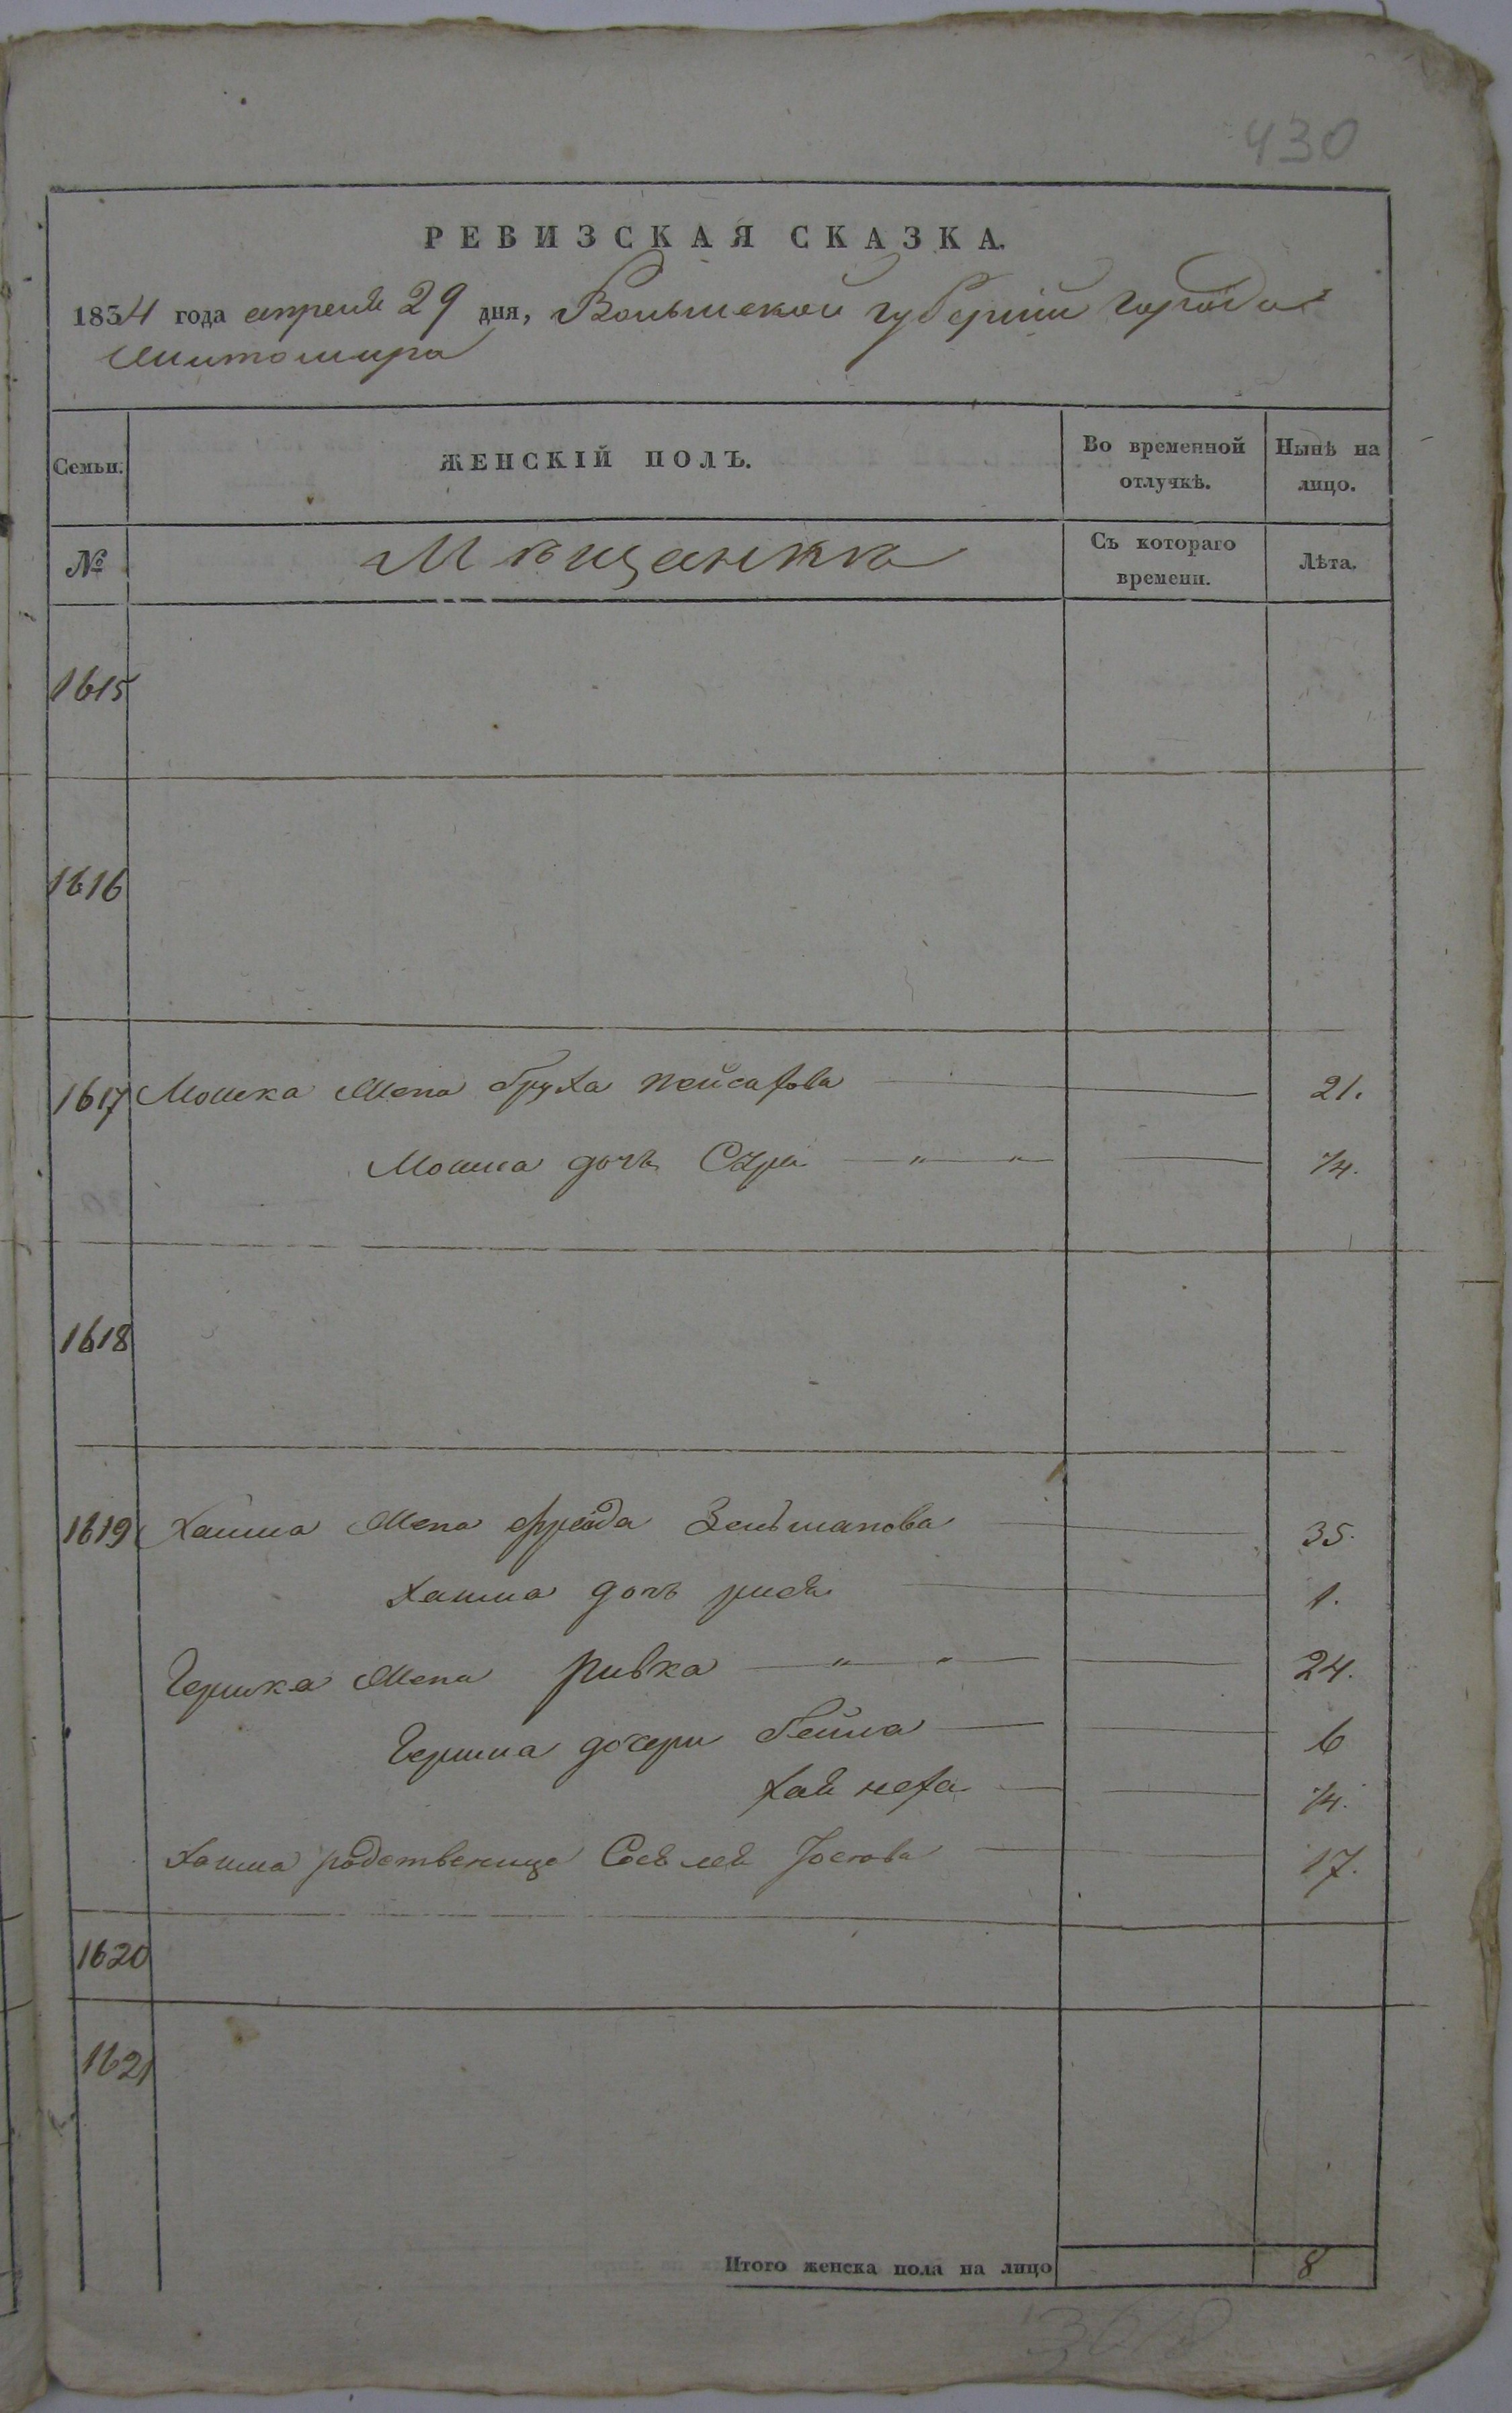 430
РЕВИЗСКАЯ СКАЗКА.
1834 года апреля 29 дня, Волынской губернiи города
Житомира
Семьи.
ЖЕНСКІЙ ПОЛЪ.
Во временной отлучкѣ.
Нынѣ на лицо.
№
Мѣщанка
Съ котораго времени.
Лѣта.
1615
1616
1617 Мошка жена Бруха Пейсахова 21.
Мошка дочь Сура — " — " 1/4.
1618
1619 Хаима жена Фрейда Зельманова 35.
Хаима дочь 1.
Гершка жена Ривка — " — " 24.
Гершка дочери Бейла 6
1/4.
Хаима родственица 17.
1620
1621
Итого женска пола на лицо 8